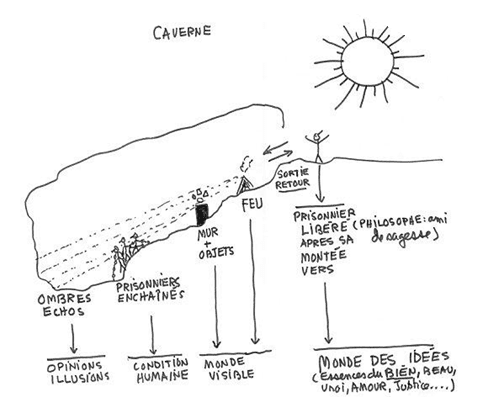 CAVERNE
SORTIE
RETOUR
FEU
MUR
+
OBJETS
PRISONNIERS
ENCHAÎNÉS
OMBRES
ECHOS
PRISONNIER
LIBÉRÉ (PHILOSOPHE: ami
APRES SA de sagesse)
MONTÉE
VERS
OPINIONS
ILLUSIONS
CONDITION
HUMAINE
MONDE
VISIBLE
MONDE DES IDÉES
(Essences du BIEN, BEAU,
Vrai, AMOUR, Justice....)